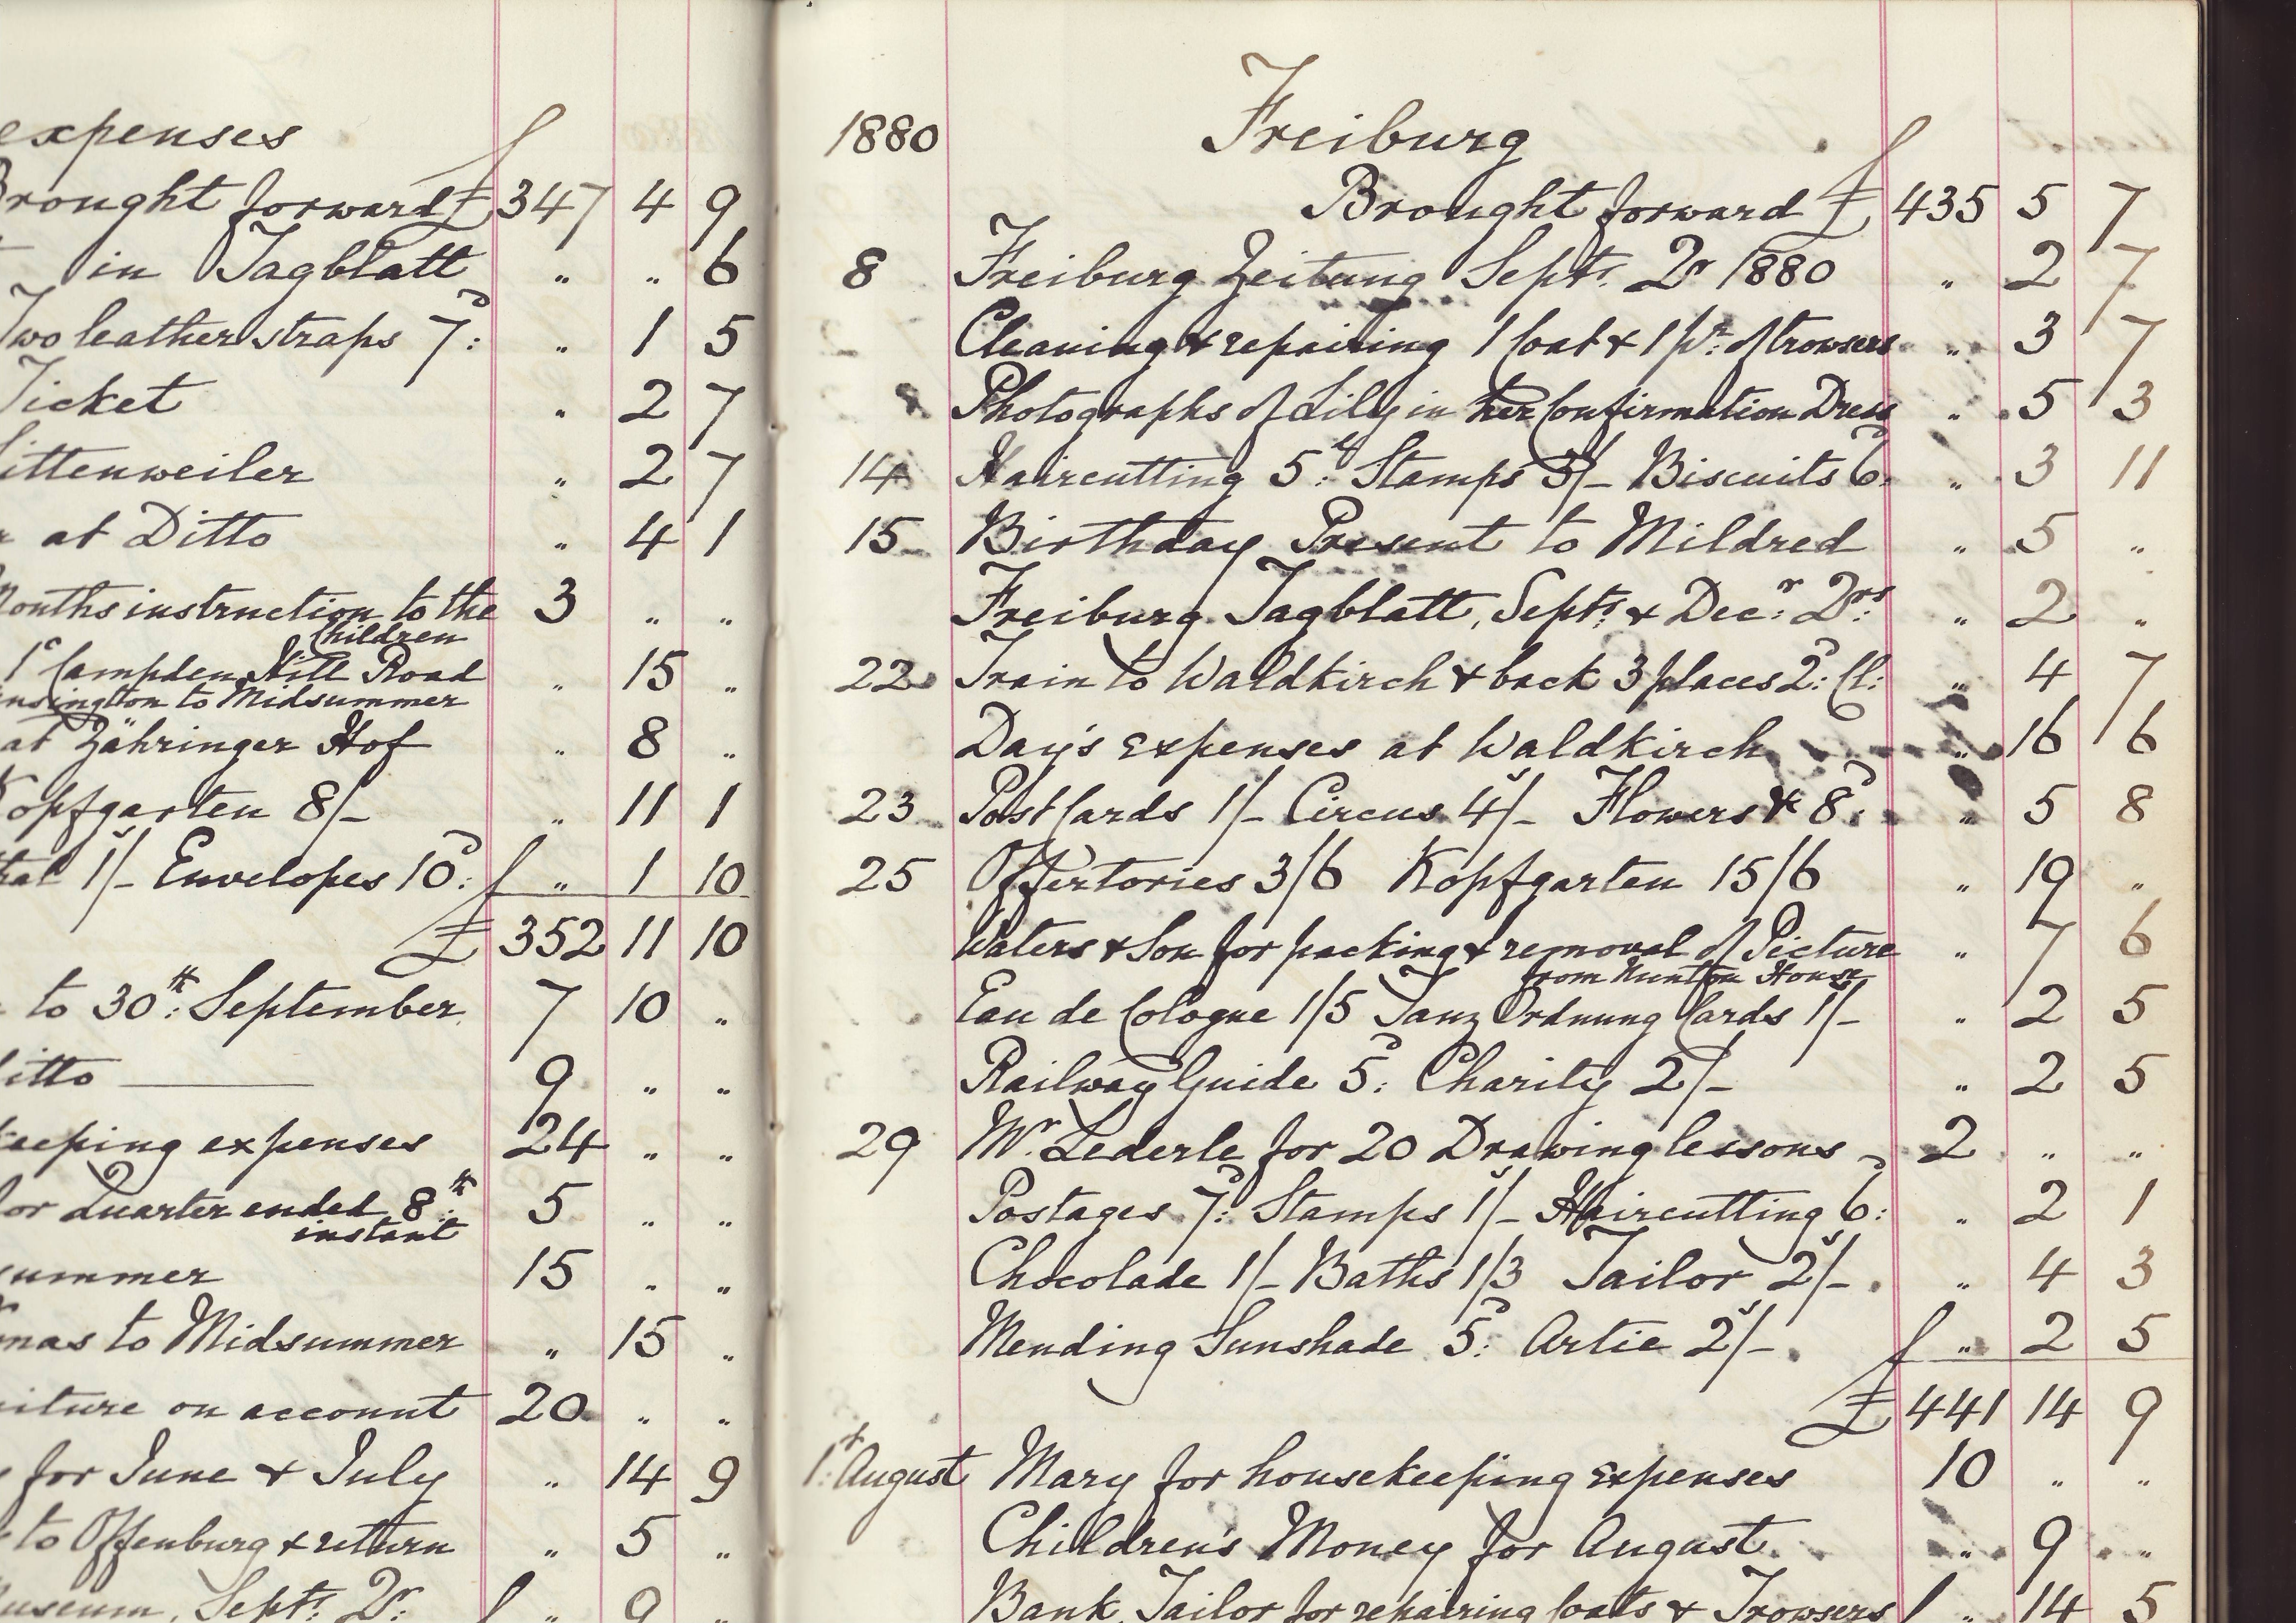 expenses
Brought forward £ 347 4 9
in Tagblatt " " 6
Two leather straps 7d: " 1 5
Ticket " 2 7
Littenweiler " 2 7
at Ditto " 4 1
Months instruction to the 3 " "
Children
1 Campden Hill Road " 15 "
Kensington to Midsummer
at Zähringer Hof " 8 "
Kopfgarten 8/- " 11 1
1s/- Envelopes 10d: " 1 10
£ 352 11 10
to 30th: September 7 10 "
Ditto 9 " "
keeping expenses 24 " "
for Quarter ended 8th: 5 " "
instant
summer 15 " "
mas to Midsummer " 15 "
on account 20 " "
for June & July " 14 9
to Offenburg & return " 5 "
Museum, Septr: Qr: " 9 "
1880 Freiburg
Brought forward £ 435 5 7
8 Freiburg Zeitung Septr. Qr 1880 " 2 7
Cleaning & repairing 1 Coat & 1 pr: of trowsers " 3 7
Photographs of Lily in her Confirmation Dress " 5 3
14 Haircutting 5d: Stamps 3/- Biscuits 6d: " 3 11
15 Birthday Present to Mildred " 5 "
Freiburg Tagblatt, Septr: & Decr: Qrs: " 2 "
22 Train to Waldkirch & back 3 places 2d: Cl: " 4 7
Day's expenses at Waldkirch " 16 6
23 Post Cards 1/- Circus 4s/- Flowers & 8d: " 5 8
25 Offertories 3/6 Kopfgarten 15/6 " 19 "
Waters & Son for packing & removal of Picture " 7 6
from Nunton House
Eau de Cologne 1/5 Tanz Ordnung Cards 1/- " 2 5
Railway Guide 5d: Charity 2/- " 2 5
29 Mr. Lederle for 20 Drawing lessons 2 " "
Postages 7d: Stamps 1s/- Haircutting 6d: " 2 1
Chocolade 1/- Baths 1/3 Tailor 2s/- " 4 3
Mending Sunshade 5d: Artie 2s/- " 2 5
£ 441 14 9
1st: August Mary for housekeeping expenses 10 " "
Children's Money for August " 9 "
Bank, Tailor for repairing Coats & Trowsers " 14 5